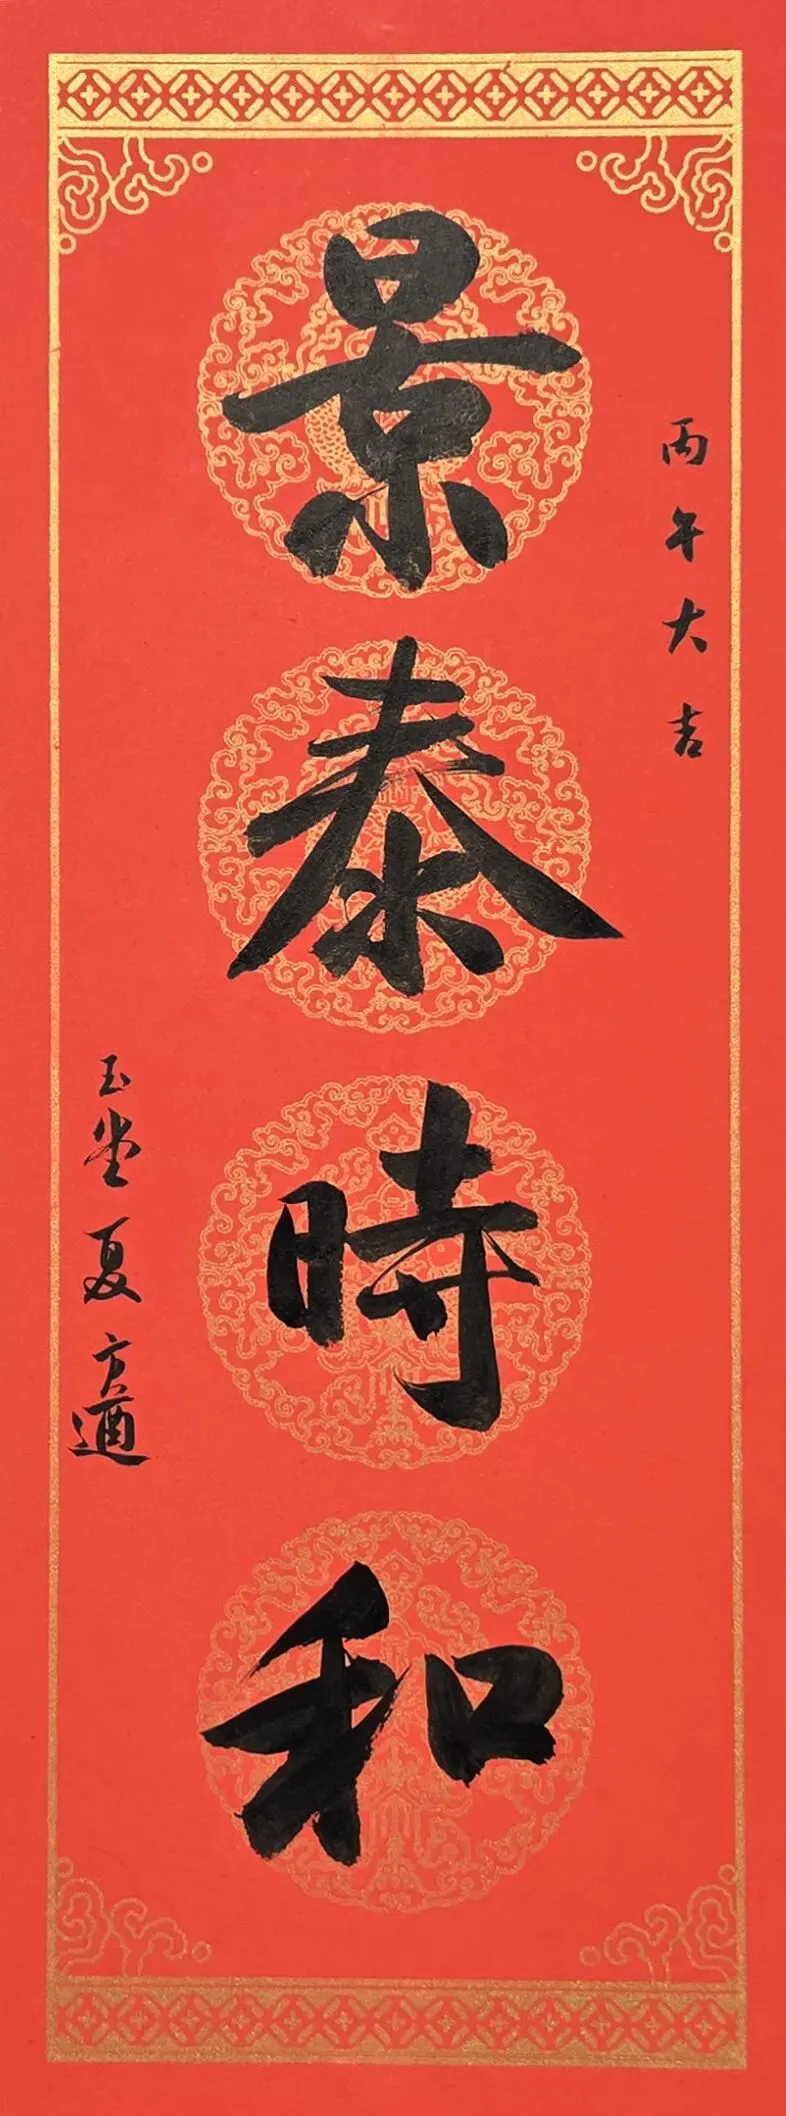 丙午大吉
景泰時和
玉堂夏方遒